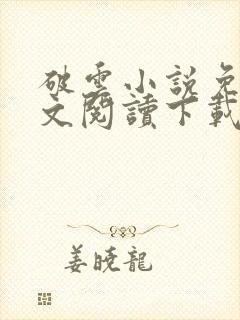 破雲小說免
文閱讀下載
姜曉龍